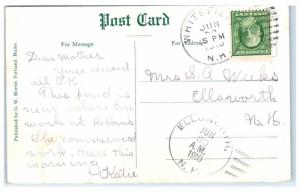 Post Card
For Message
For Address
Published by G. W. Morris, Portland, Maine.
Dear Mother
Your card
all O.K.
This pond is
near where Don
work at Robbins
She commenced
work here this
morning
Katie
WHITEFIELD
JUN
5 PM
1910
N.H.
Mrs S. A. Weeks
Ellsworth
N. H.
ELLSWORTH
JUN
A.M.
1910
N.H.